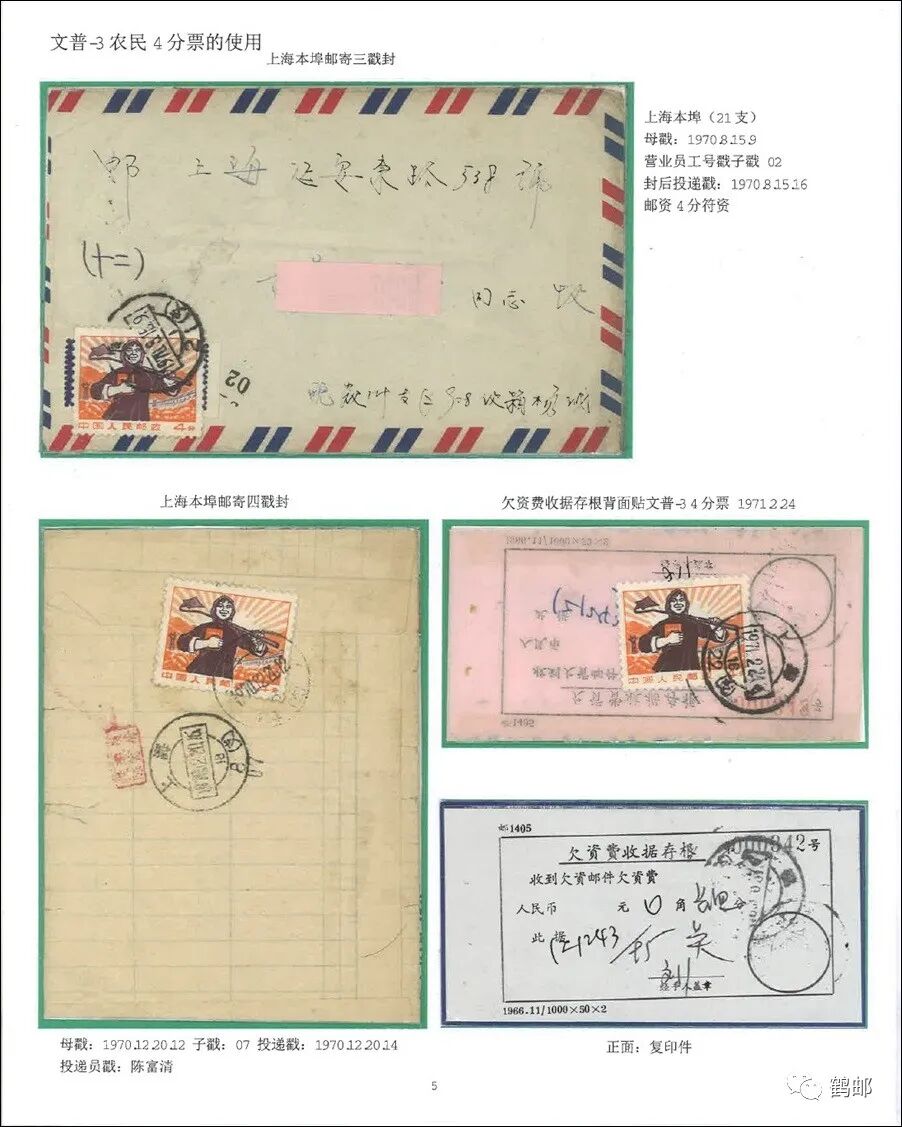 文普-3农民4分票的使用
上海本埠邮寄三戳封
上海本埠（21支）
母戳：1970.8.15.9
营业员工号戳子戳 02
封后投递戳：1970.8.15.16
邮资4分符资
上海延安东路538號
(十二)
同志 收
02
中国人民邮政 4分
上海本埠邮寄四戳封
中国人民邮
07
母戳：1970.12.20.12 子戳：07 投递戳：1970.12.20.14
投递员戳：陈富清
欠资费收据存根背面贴文普-3 4分票 1971.2.24
1966.11/1000×50×2
中国人民邮
邮1405
欠资费收据存根
000342号
收到欠资邮件欠资费
人民币 元 0 角 分
此据
经手人盖章
1966.11/1000×50×2
正面：复印件
5
鹤邮